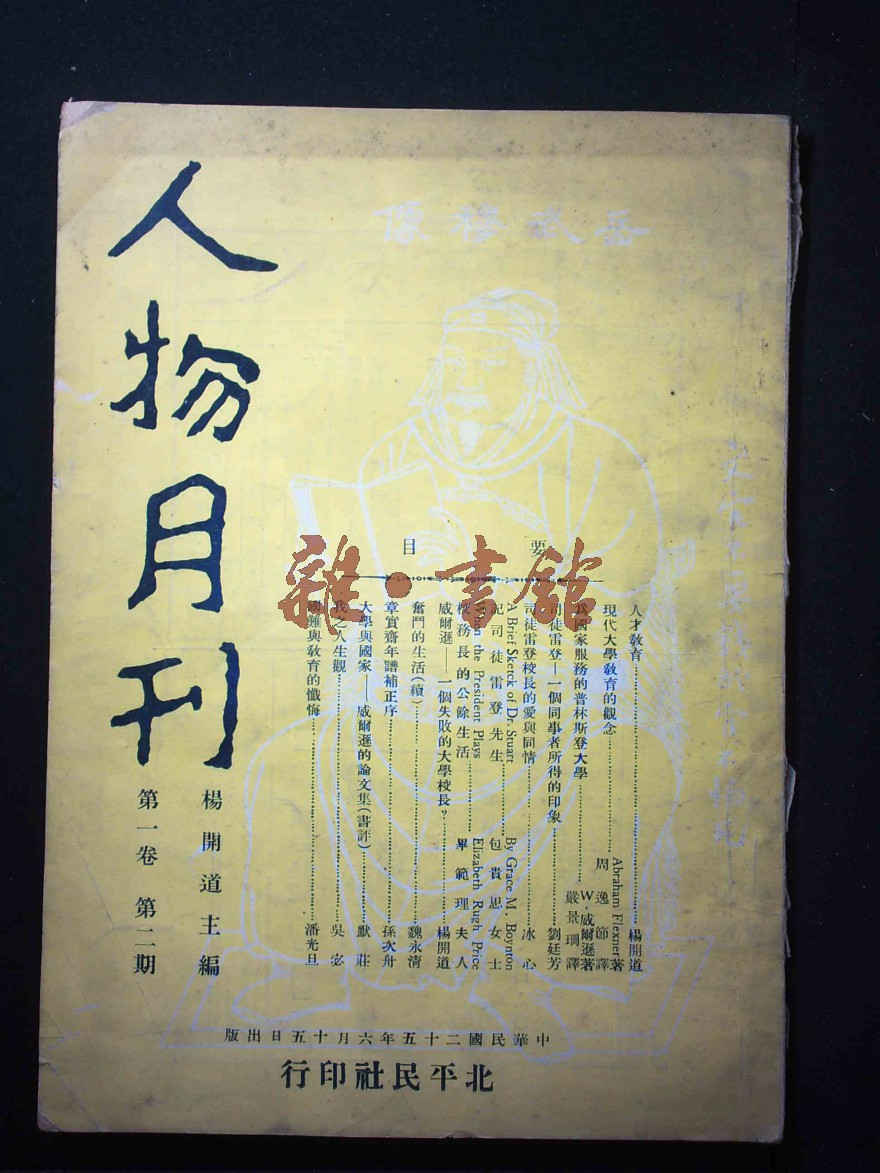 人物月刊
楊開道主編
第一卷 第二期
岳武穆像
要目
人才教育 楊開道
現代大學教育的觀念 Abraham Flexner著 周逸節譯
爲國家服務的普林斯登大學 W.威爾遜著 嚴景珊譯
司徒雷登—一個同事者所得的印象 劉廷芳
司徒雷登校長的愛與同情 冰心
A Brief Skerck of Dr. Stuart By Grace M. Boynton
記司徒雷登先生 包貴思女士
When the President Plays Elizabeth Rugh Price
校務長的公餘生活 畢範理夫人
威爾遜——一個失敗的大學校長? 楊開道
奮鬥的生活(續) 魏永清
章實齋年譜補正序 孫次舟
大學與國家——威爾遜的論文集(書評) 默莊
我之人生觀 吳宓
國難與教育的懺悔 潘光旦
雜·書館
中華民國二十五年六月十五日出版
北平民社印行